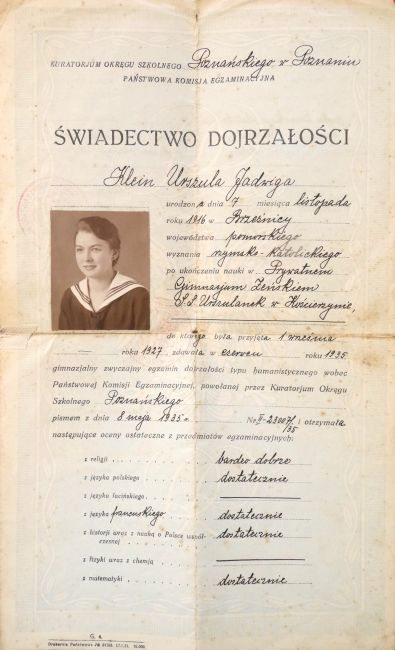 KURATORJUM OKRĘGU SZKOLNEGO Poznańskiego w Poznaniu
PAŃSTWOWA KOMISJA EGZAMINACYJNA
ŚWIADECTWO DOJRZAŁOŚCI
Klein Urszula Jadwiga
urodzona dnia 7 miesiąca listopada
roku 1916 w Brzeźnicy
województwa pomorskiego
wyznania rzymsko-katolickiego
po ukończeniu nauki w Prywatnem
Gimnazjum Żeńskiem
S.S. Urszulanek w Kościerzynie,
do którego była przyjęta 1 września
roku 1927 zdawała w czerwcu roku 1935
gimnazjalny zwyczajny egzamin dojrzałości typu humanistycznego wobec
Państwowej Komisji Egzaminacyjnej, powołanej przez Kuratorjum Okręgu
Szkolnego Poznańskiego
pismem z dnia 8 maja 1935 r. Nr II-23007/35 i otrzymała
następujące oceny ostateczne z przedmiotów egzaminacyjnych:
z religji bardzo dobrze
z języka polskiego dostatecznie
z języka łacińskiego
z języka francuskiego dostatecznie
z historji wraz z nauką o Polsce współ- dostatecznie
czesnej
z fizyki wraz z chemją
z matematyki dostatecznie
G. s.
Drukarnia Państwowa